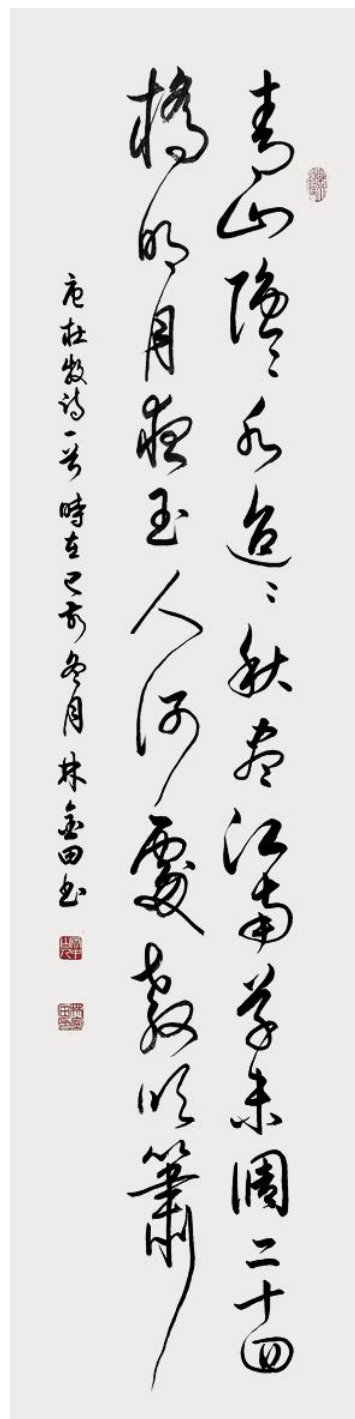 青山隱〻水迢〻秋盡江南草未凋二十四
橋明月夜玉人何處教吹簫
唐杜牧诗一首時在己亥冬月林金田书